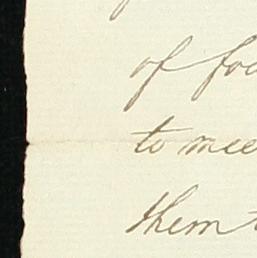 of foo
to mee
them t